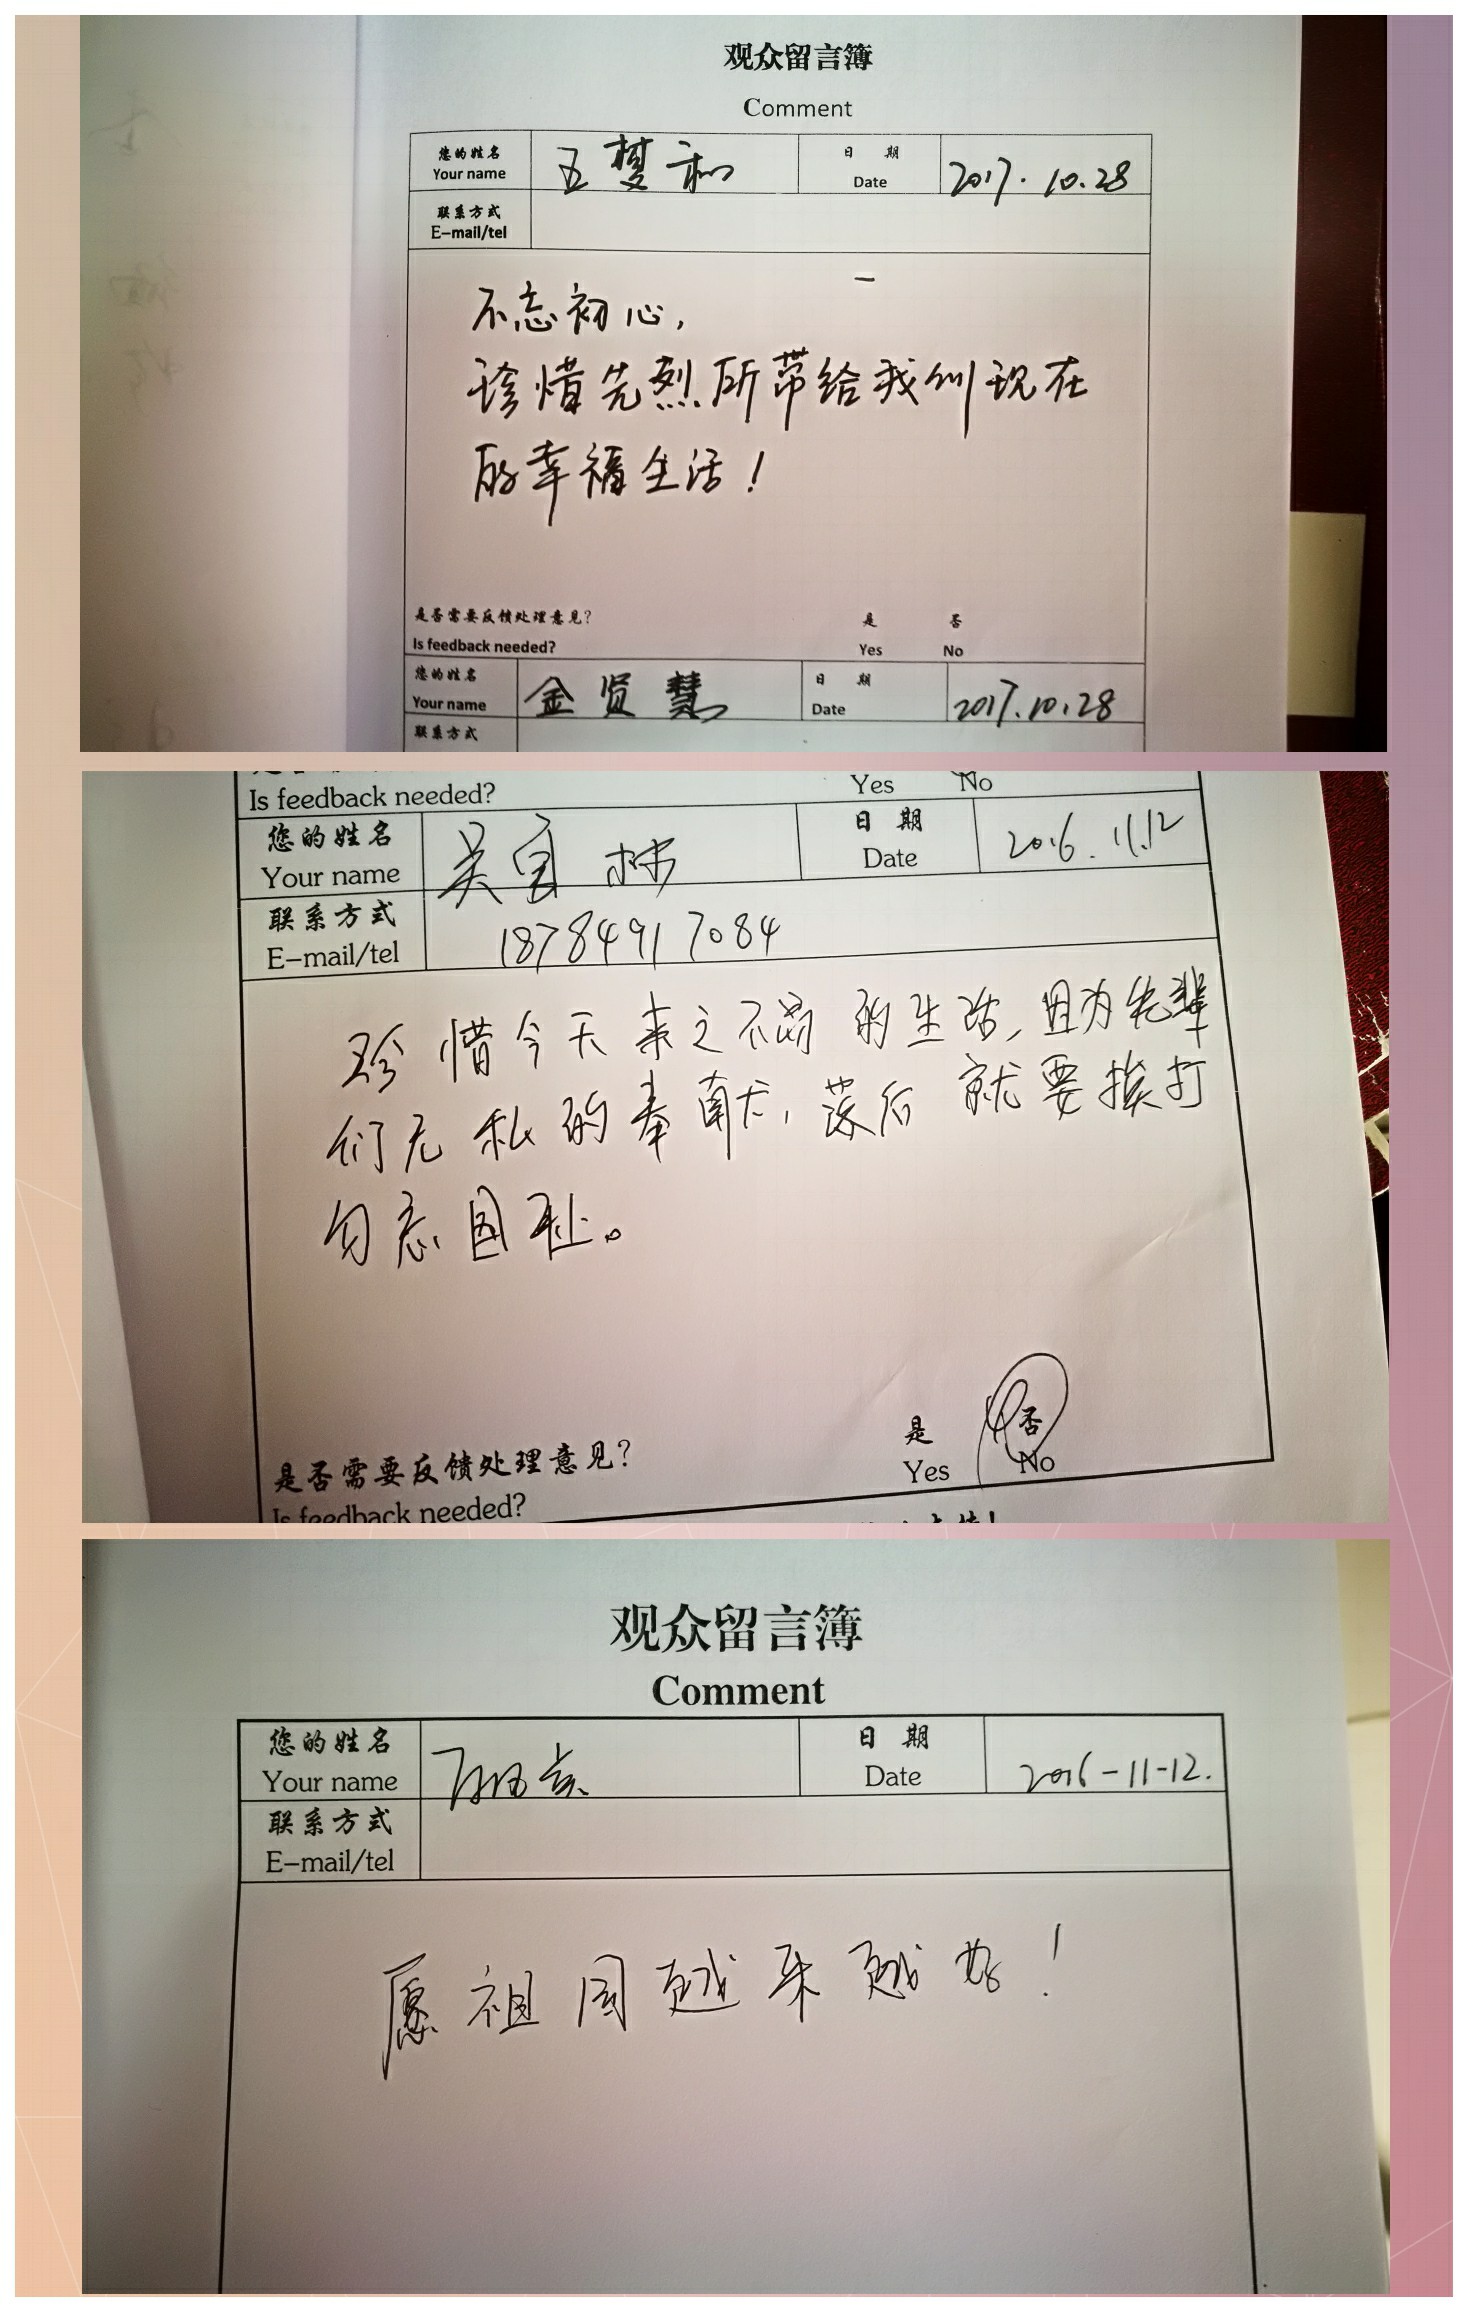 观众留言簿
Comment
您的姓名
Your name
王梦和
日 期
Date
2017.10.28
联系方式
E-mail/tel
不忘初心,
珍惜先烈所带给我们现在
的幸福生活!
是否需要反馈处理意见?
是 否
Is feedback needed?
Yes No
您的姓名
Your name
金贤慧
日 期
Date
2017.10.28
联系方式
Is feedback needed?
Yes No
您的姓名
Your name
吴宜林
日 期
Date
2016.11.12
联系方式
E-mail/tel
18784917084
珍惜今天来之不易的生活,因为先辈
们无私的奉献,落后就要挨打
勿忘国耻。
是 否
Yes No
是否需要反馈处理意见?
Is feedback needed?
观众留言簿
Comment
您的姓名
Your name
日 期
Date
2016-11-12.
联系方式
E-mail/tel
愿祖国越来越好!